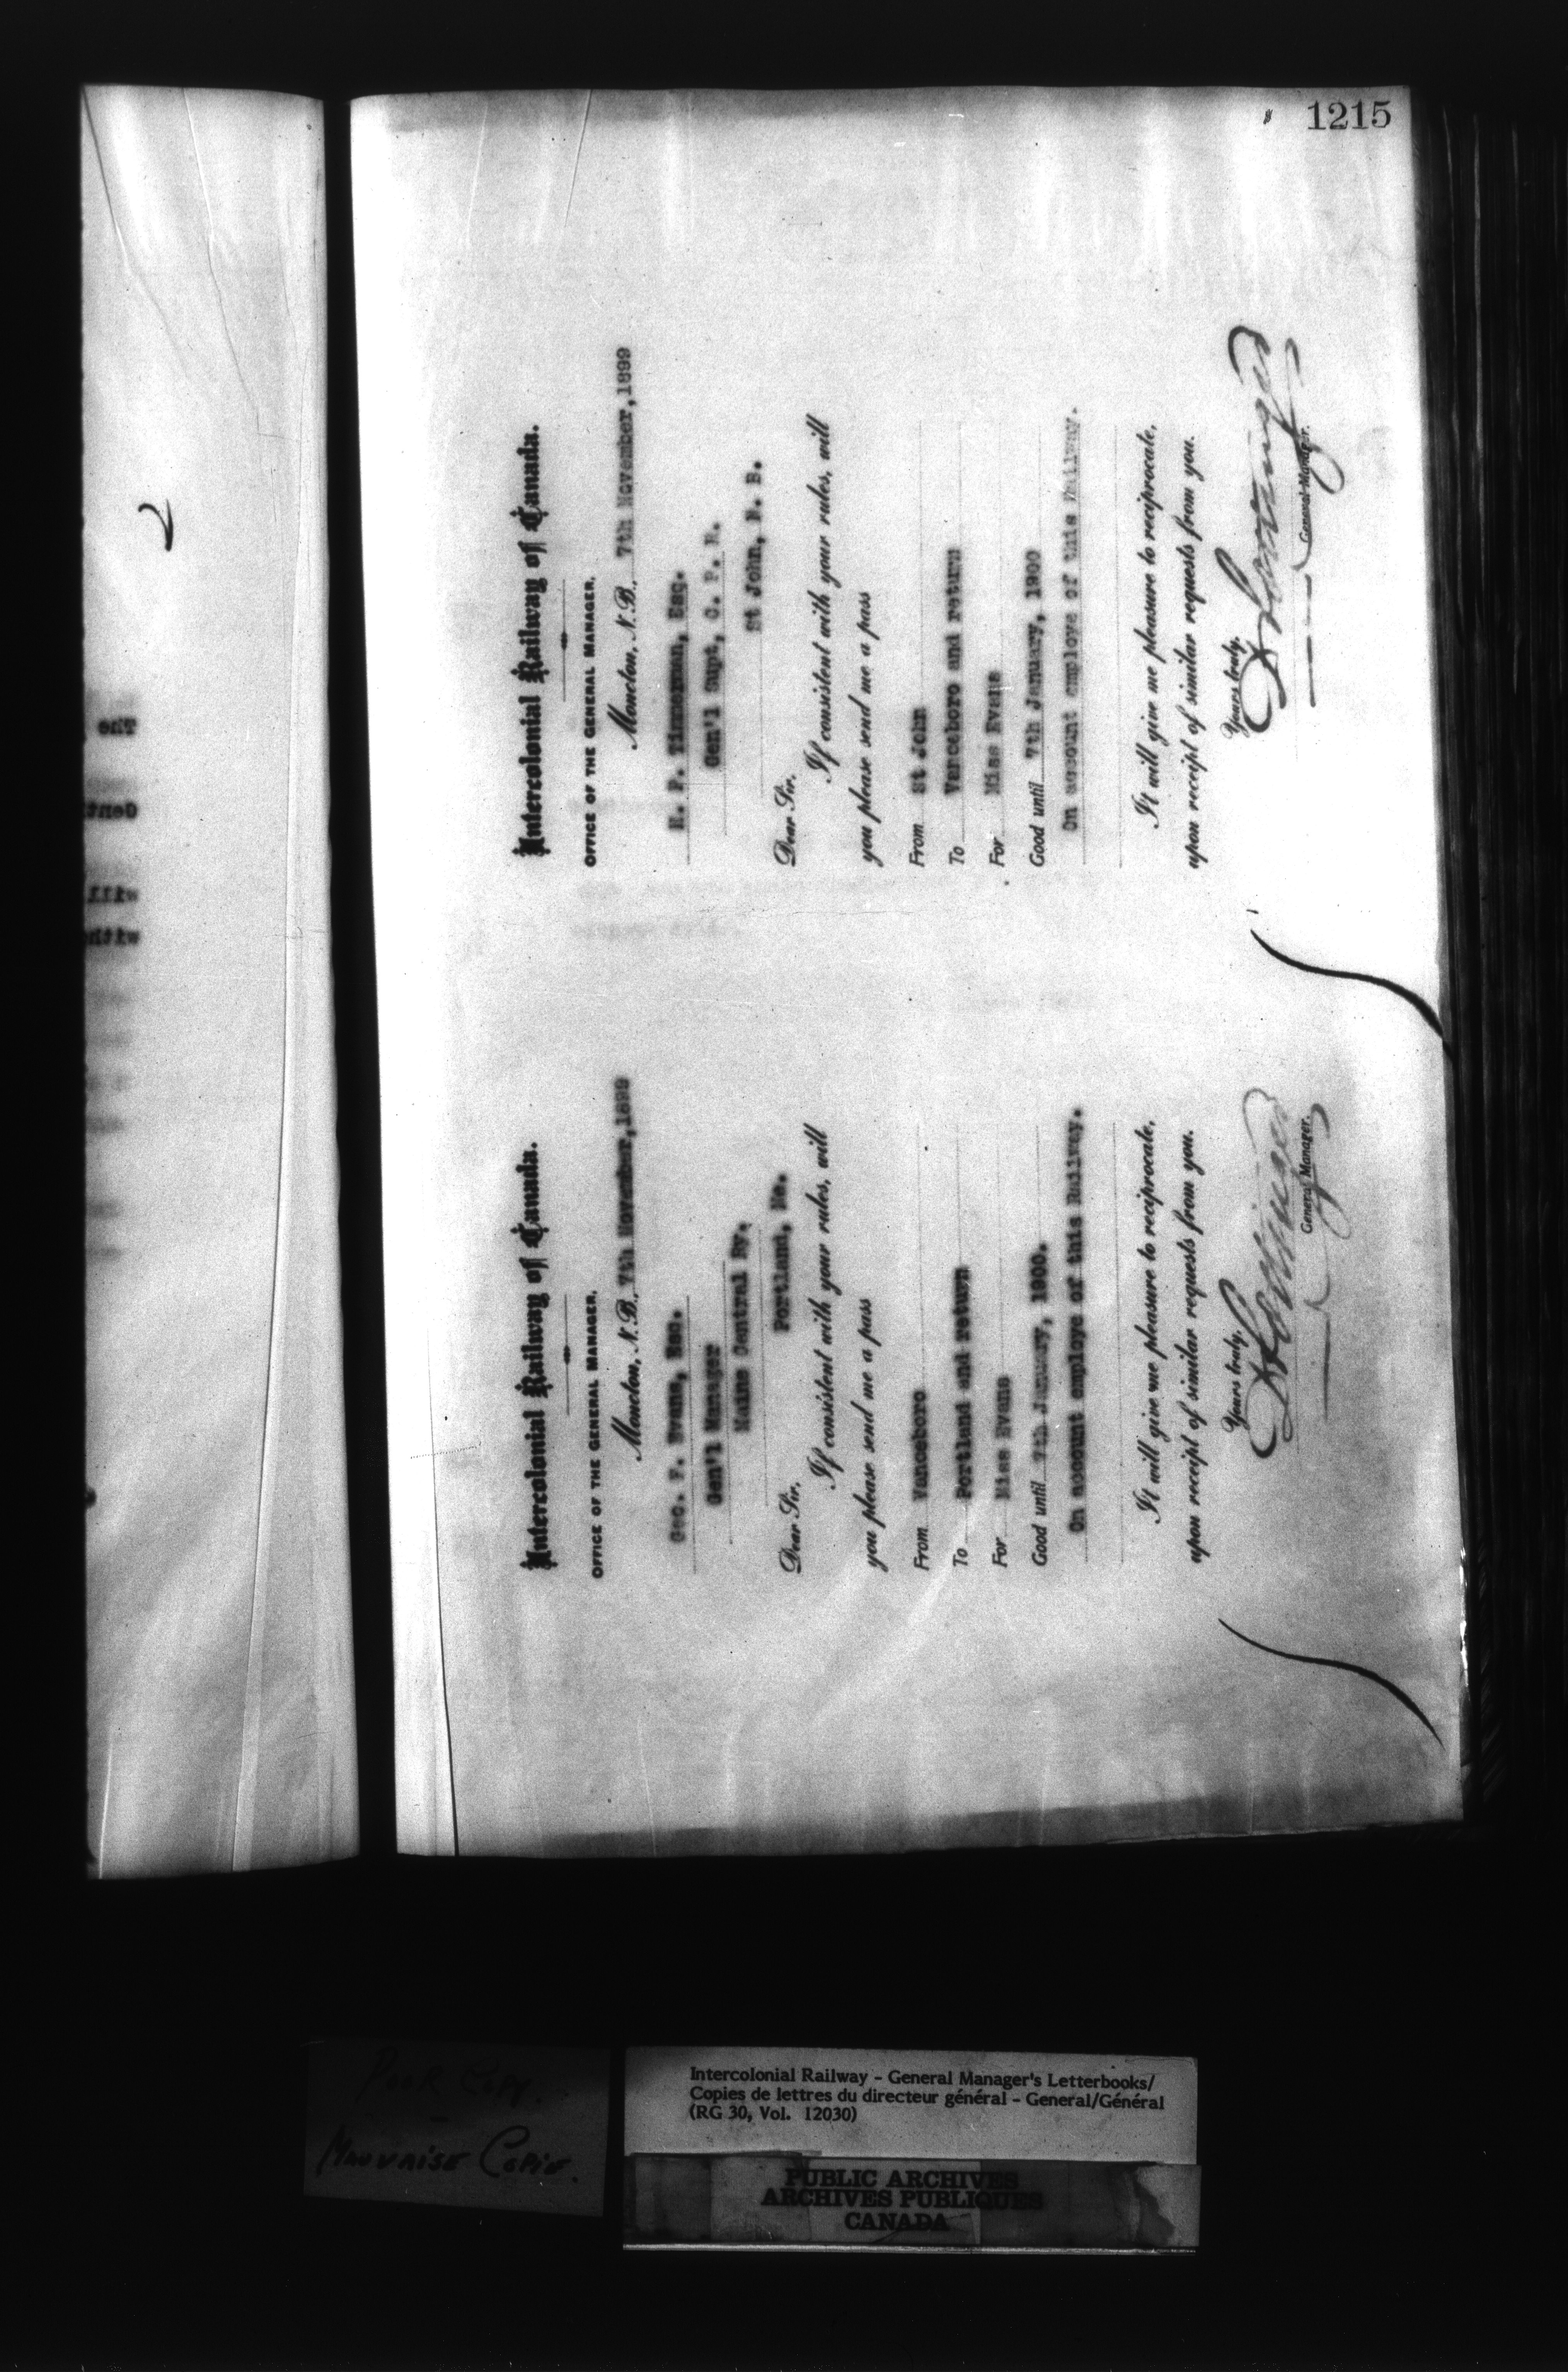 1215
Intercolonial Railway of Canada.
OFFICE OF THE GENERAL MANAGER.
Moncton, N.B., 7th November,1899
Geo. F. Evans, Esq.
Gen'l Manager
Maine Central Ry.
Portland, Me.
Dear Sir.
If consistent with your rules, will
you please send me a pass
From Vanceboro
To Portland and return
For Miss Evans
Good until 7th January, 1900.
On account employe of this Railway.
It will give me pleasure to reciprocate,
upon receipt of similar requests from you.
Yours truly,
General Manager.
Intercolonial Railway of Canada.
OFFICE OF THE GENERAL MANAGER.
Moncton, N.B., 7th November,1899
H. P. Timmerman, Esq.
Gen'l Supt, C. P. R.
St John, N. B.
Dear Sir.
If consistent with your rules, will
you please send me a pass
From St John
To Vanceboro and return
For Miss Evans
Good until 7th January, 1900
On account employe of this Railway.
It will give me pleasure to reciprocate,
upon receipt of similar requests from you.
Yours truly,
General Manager.
Poor Copy.
Mauvaise Copie.
Intercolonial Railway - General Manager's Letterbooks/
Copies de lettres du directeur général - General/Général
(RG 30, Vol. 12030)
PUBLIC ARCHIVES
ARCHIVES PUBLIQUES
CANADA